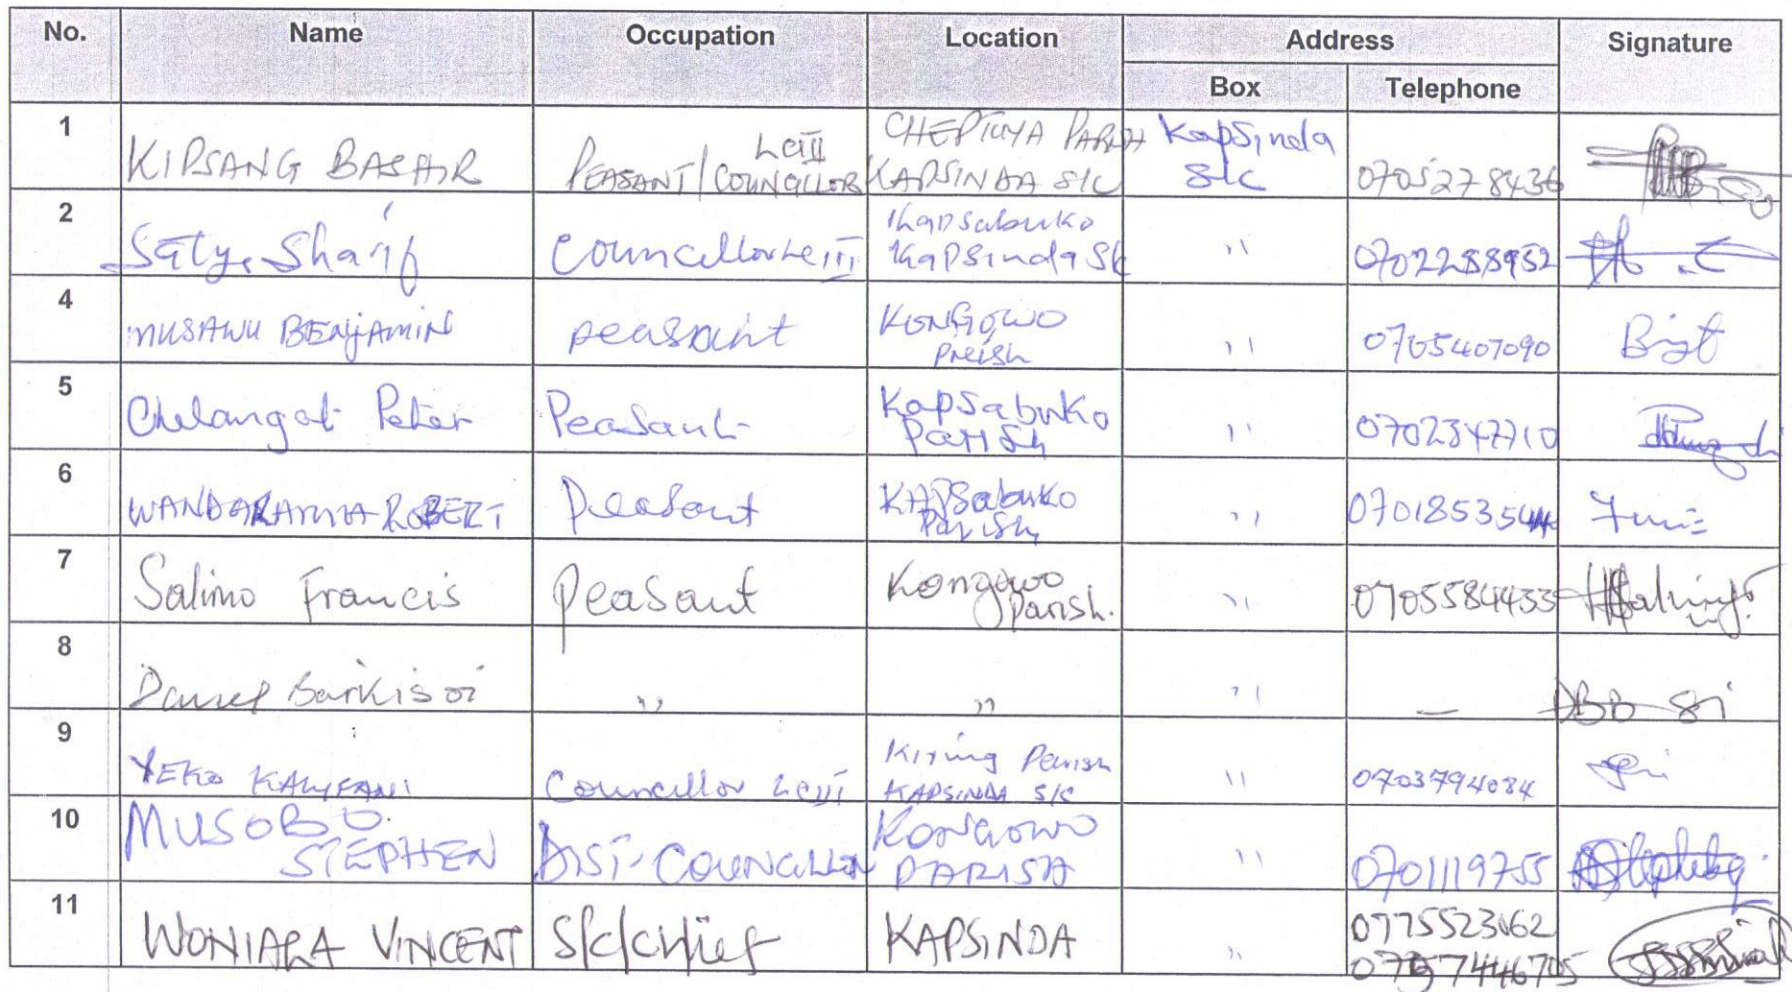 No. Name Occupation Location Address Signature
Box Telephone
1 KIPSANG BASHIR PEASANT/COUNCILLOR LCIII CHEPTUYA PARISH KAPSINDA S/C Kapsinda S/C 0705278436
2 Satya Sharif Councillor LCIII Kapsabuko Kapsinda S/C ,, 0702288952
4 MUSAWU BENJAMIN peasant KONGOWO ,, 0705407090
5 Chelangat Peter Peasant Kapsabuko Parish ,, 0702347710
6 ROBERT Peasant KAPSabuko Parish ,,
7 Salimo Francis Peasant Kongowo Parish. ,, 0705584433
8 Barkisoi ,, ,, ,, —
9 YEKO Councillor LCIII Parish KAPSINDA S/C ,, 0703794084
10 MUSOBO STEPHEN DIST. COUNCILLOR KONGOWO PARISH ,, 0701119755
11 WONIALA VINCENT S/C/CHIEF KAPSINDA ,, 0775523062